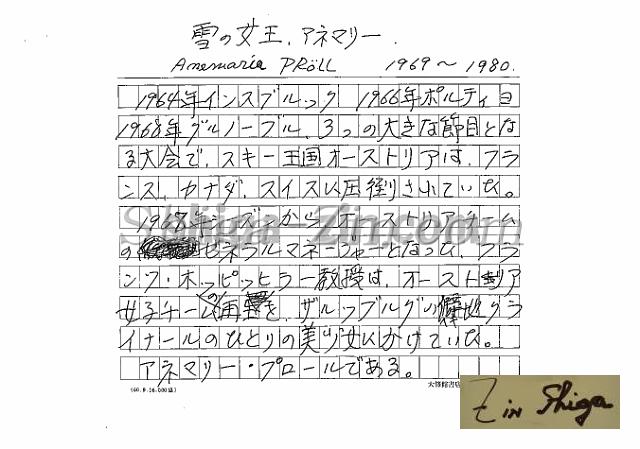 雪の女王、アネマリー.
Annemarie PRöLL 1969〜1980.
1964年インスブルック 1966年ポルティヨ
1968年グルノーブル、3つの大きな節目とな
る大会で、スキー王国オーストリアは、フラ
ンス、カナダ、スイスに圧倒されていた。
1968年シーズンからオーストリアチーム
の ゼネラルマネージャーとなった、フラ
ンツ・ホッピッヒラー教授は、オーストリア
女子チームの再生を、ザルツブルグの 近クラ
イナールのひとりの美少女にかけていた。
アネマリー・プロールである。
Shiga-Zin.com
Z in Shiga